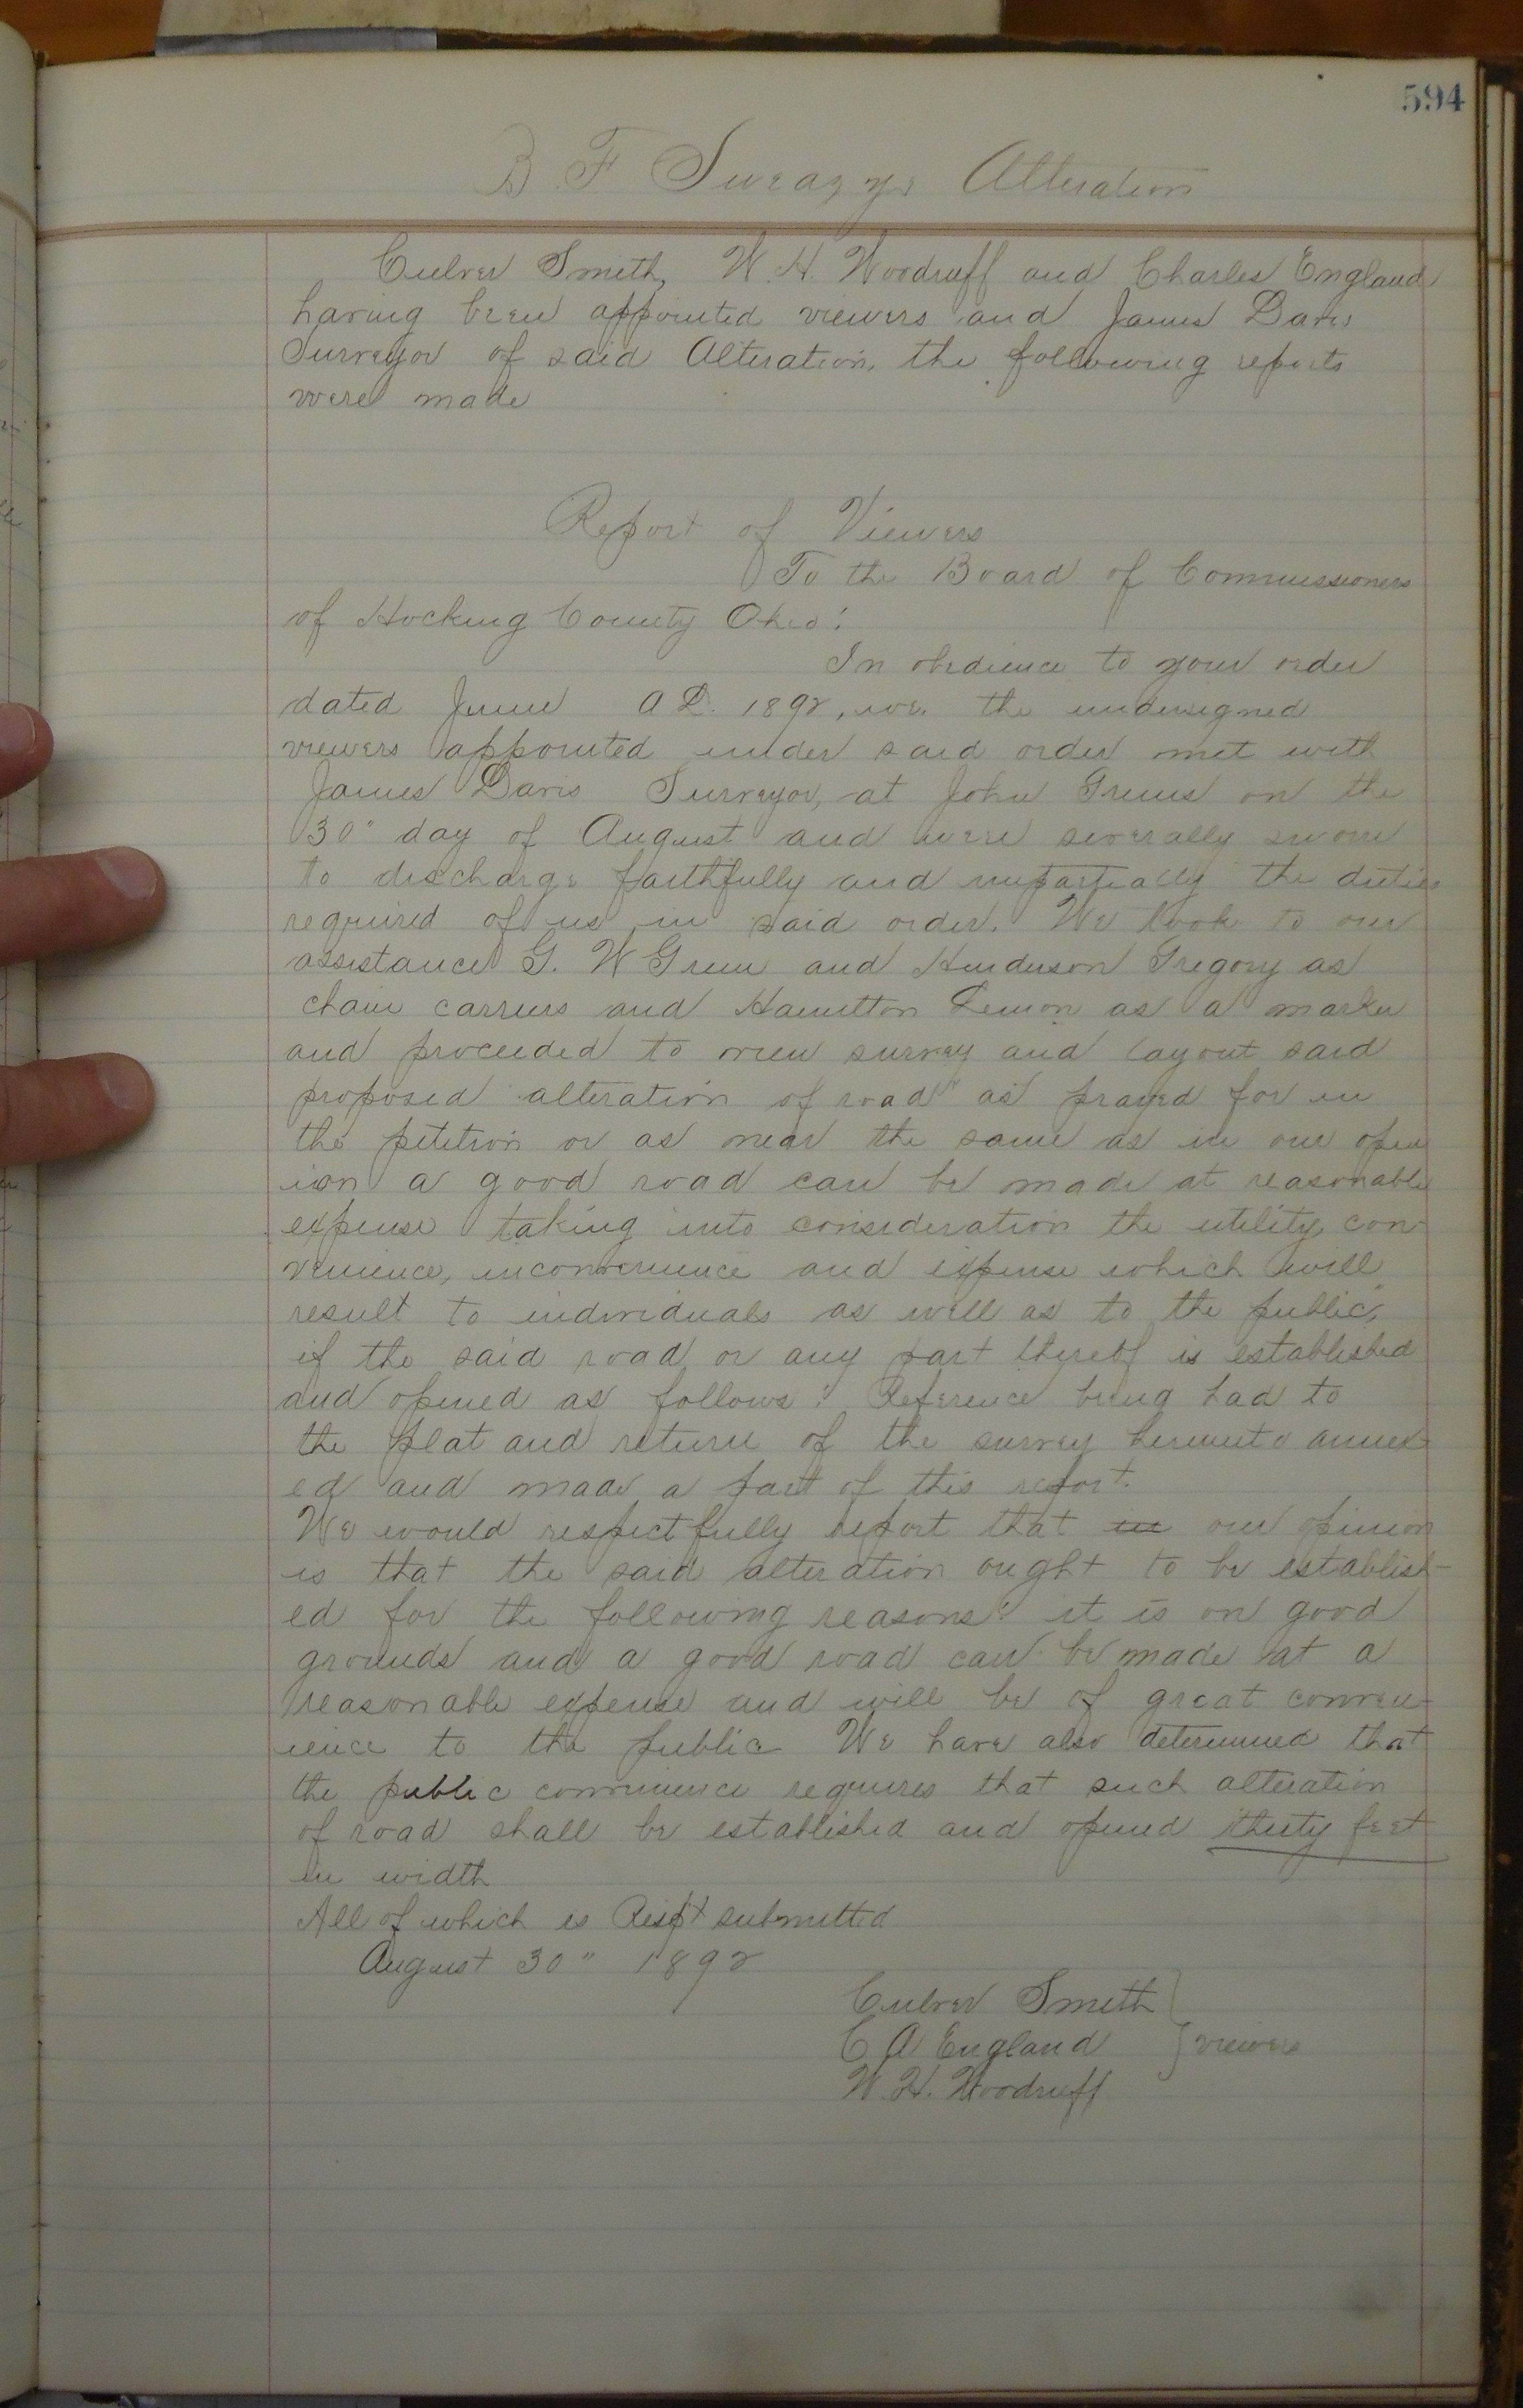 594
B. F. Sweazys Alteration
Culver Smith, W. H. Woodruff and Charles England
having been appointed viewers and James Davis
Surveyor of said Alteration, the following reports
were made
Report of Viewers
To the Board of Commissioners
of Hocking County Ohio:
In obedience to your order
dated June A.D. 1892, we the undersigned
viewers appointed under said order met with
James Davis Surveyor, at John Grens on the
30" day of August and were severally sworn
to discharge faithfully and impartially the duties
required of us in said order. We took to our
assistance G. W Green and Henderson Gregory as
chain carriers and Hamilton Lemon as a marker
and proceeded to view survey and layout said
proposed alteration of road as prayed for in
the petition or as near the same as in our opin
ion a good road can be made at reasonable
expense taking into consideration the utility, con-
venience, inconvenience and expense which will
result to individuals as well as to the public,
if the said road or any part thereof is established
and opened as follows: Reference being had to
the plat and return of the survey hereunto annex-
ed and made a part of this report.
We would respectfully report that in our opinion
is that the said alteration ought to be establish-
ed for the following reasons: it is on good
grounds and a good road can be made at a
reasonable expense and will be of great conven-
ience to the public We have also determined that
the public convenience requires that such alteration
of road shall be established and opened thirty feet
in width
All of which is Respt submitted
August 30" 1892
Culver Smith
C A England } viewers
W. H. Woodruff